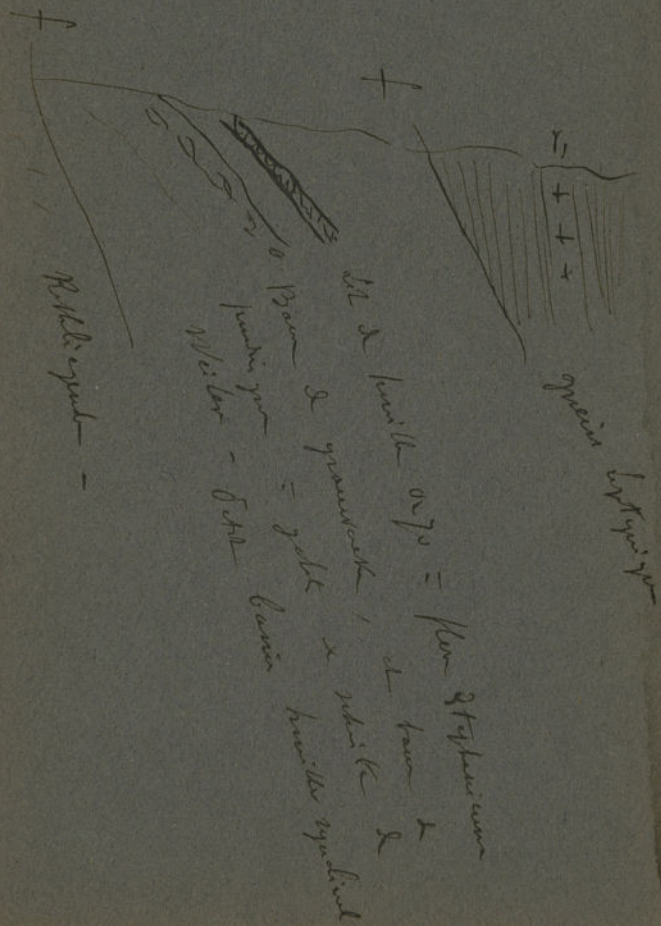 γ,
+ + +
gneiss leptynique
Lit de houille 0m70 = flore Stephanienne
0 Banc de grauwacke, et banc de
poudingue = galets de schiste de
Weiler - Petit bassin houiller synclinal
Rothliegende -